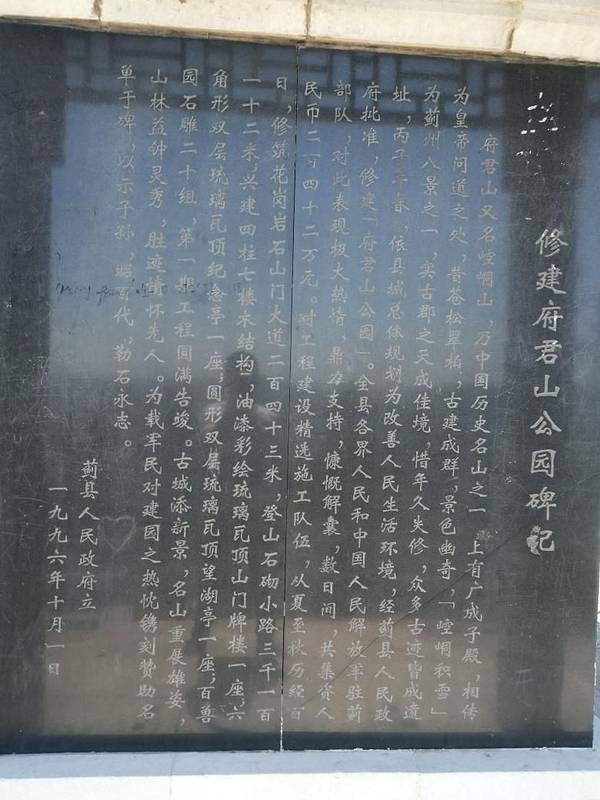 修建府君山公园碑记
府君山又名崆峒山，万中国历史名山之一 上有广成子殿，相传
为皇帝问道之处，昔苍松翠柏，古建成群，景色幽奇，「崆峒积雪」
为蓟州八景之一，实古郡之天成佳境，惜年久失修，众多古迹皆成遗
址，丙子年春，依县城总体规划为改善人民生活环境，经蓟县人民政
府批准，修建「府君山公园」。全县各界人民和中国人民解放军驻蓟
部队，对此表现极大热情，鼎力支持，慷慨解囊，数日间，共集资人
民币二百四十二万元。对工程建设精选施工队伍，从夏至秋历经百
日，修筑花岗岩石山门大道二百四十三米，登山石砌小路三千一百
一十二米，兴建四柱七楼木结构，油漆彩绘琉璃瓦顶山门牌楼一座，六
角形双层琉璃瓦顶纪念亭一座；圆形双层琉璃瓦顶望湖亭一座；百兽
园石雕二十组，第一期工程圆满告竣。古城添新景，名山重展雄姿，
山林益钟灵秀，胜迹 怀先人。为载军民对建园之热忱镌刻赞助名
单于碑，以示子孙，昭 代，勒石永志。
蓟县人民政府立
一九九六年十月一日